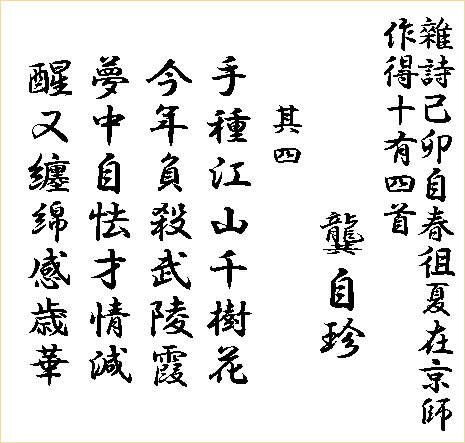 雜詩己卯自春徂夏在京師
作得十有四首
龔自珍
其四
手種江山千樹花
今年負殺武陵霞
夢中自怯才情減
醒又纏綿感歳華